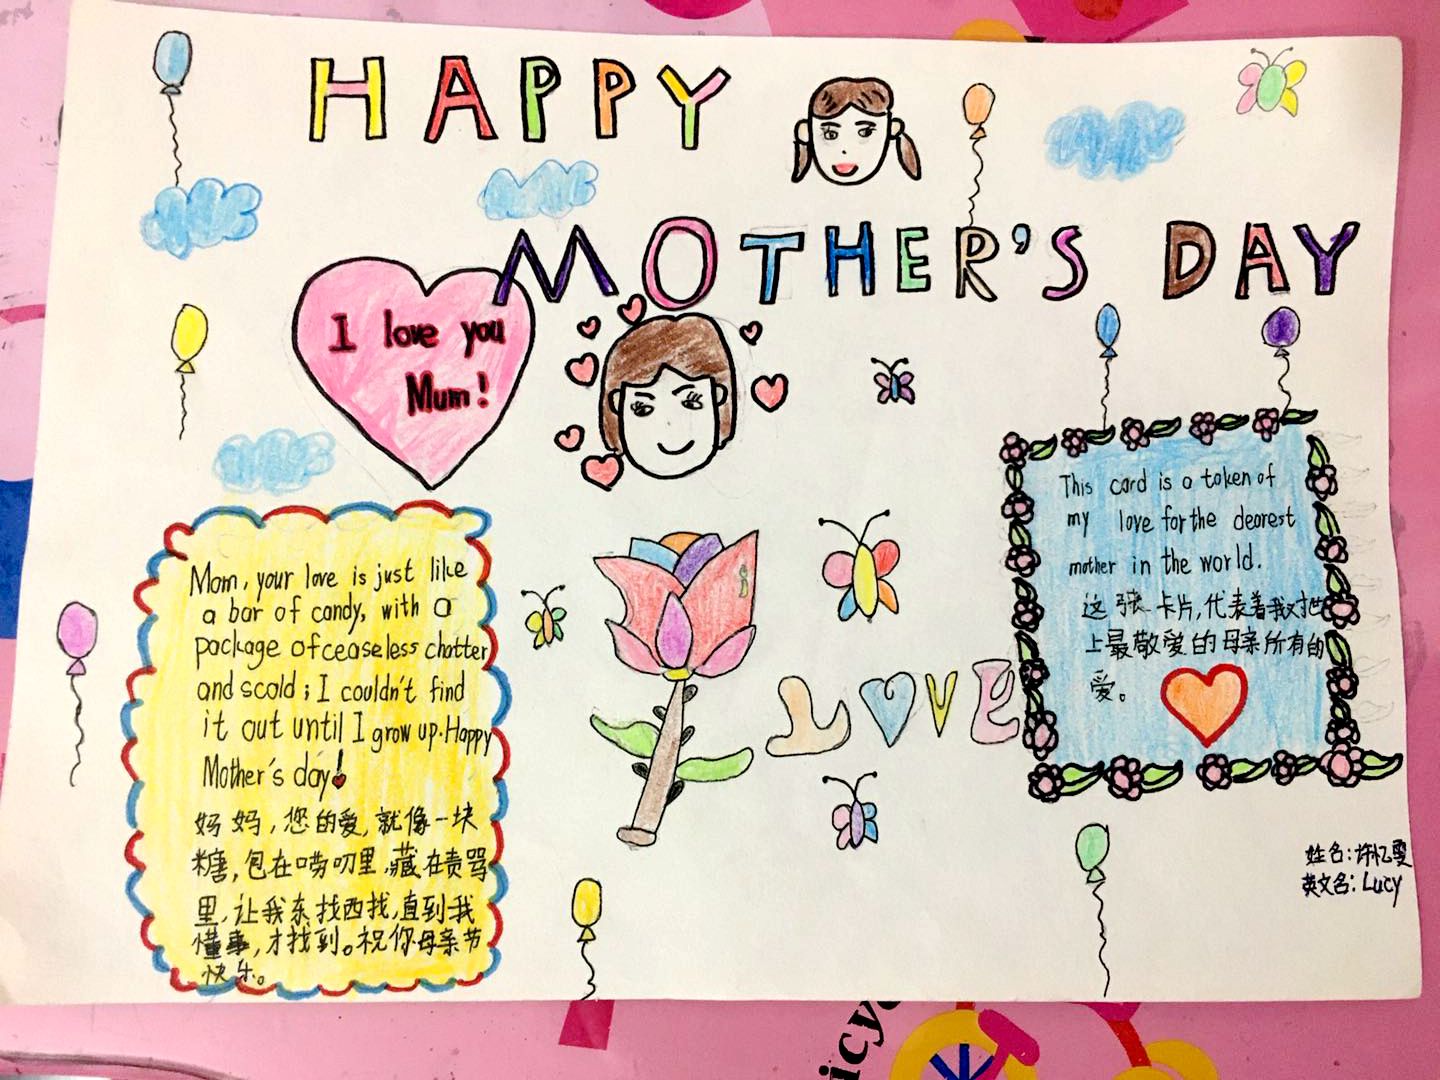 HAPPY
MOTHER'S DAY
I love you
Mum!
Mom, your love is just like
a bar of candy, with a
package of ceaseless chatter
and scold; I couldn't find
it out until I grow up. Happy
Mother's day!
妈妈,您的爱,就像一块
糖,包在唠叨里,藏在责骂
里,让我东找西找,直到我
懂事,才找到。祝你母亲节
快乐。
LOVE
This card is a token of
my love for the dearest
mother in the world.
这张卡片,代表着我对世
上最敬爱的母亲所有的
爱。
姓名:许忆雯
英文名:Lucy
icyc